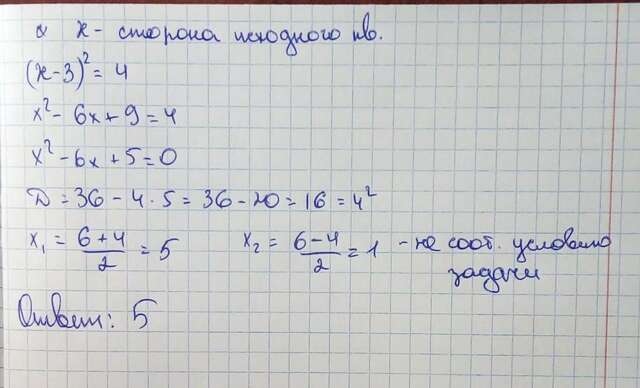 α x - сторона исходного кв.
(x-3)² = 4
x² - 6x + 9 = 4
x² - 6x + 5 = 0
D = 36 - 4 · 5 = 36 - 20 = 16 = 4²
x₁ = (6+4)/2 = 5    x₂ = (6-4)/2 = 1 - не соот. условию
задачи
Ответ: 5